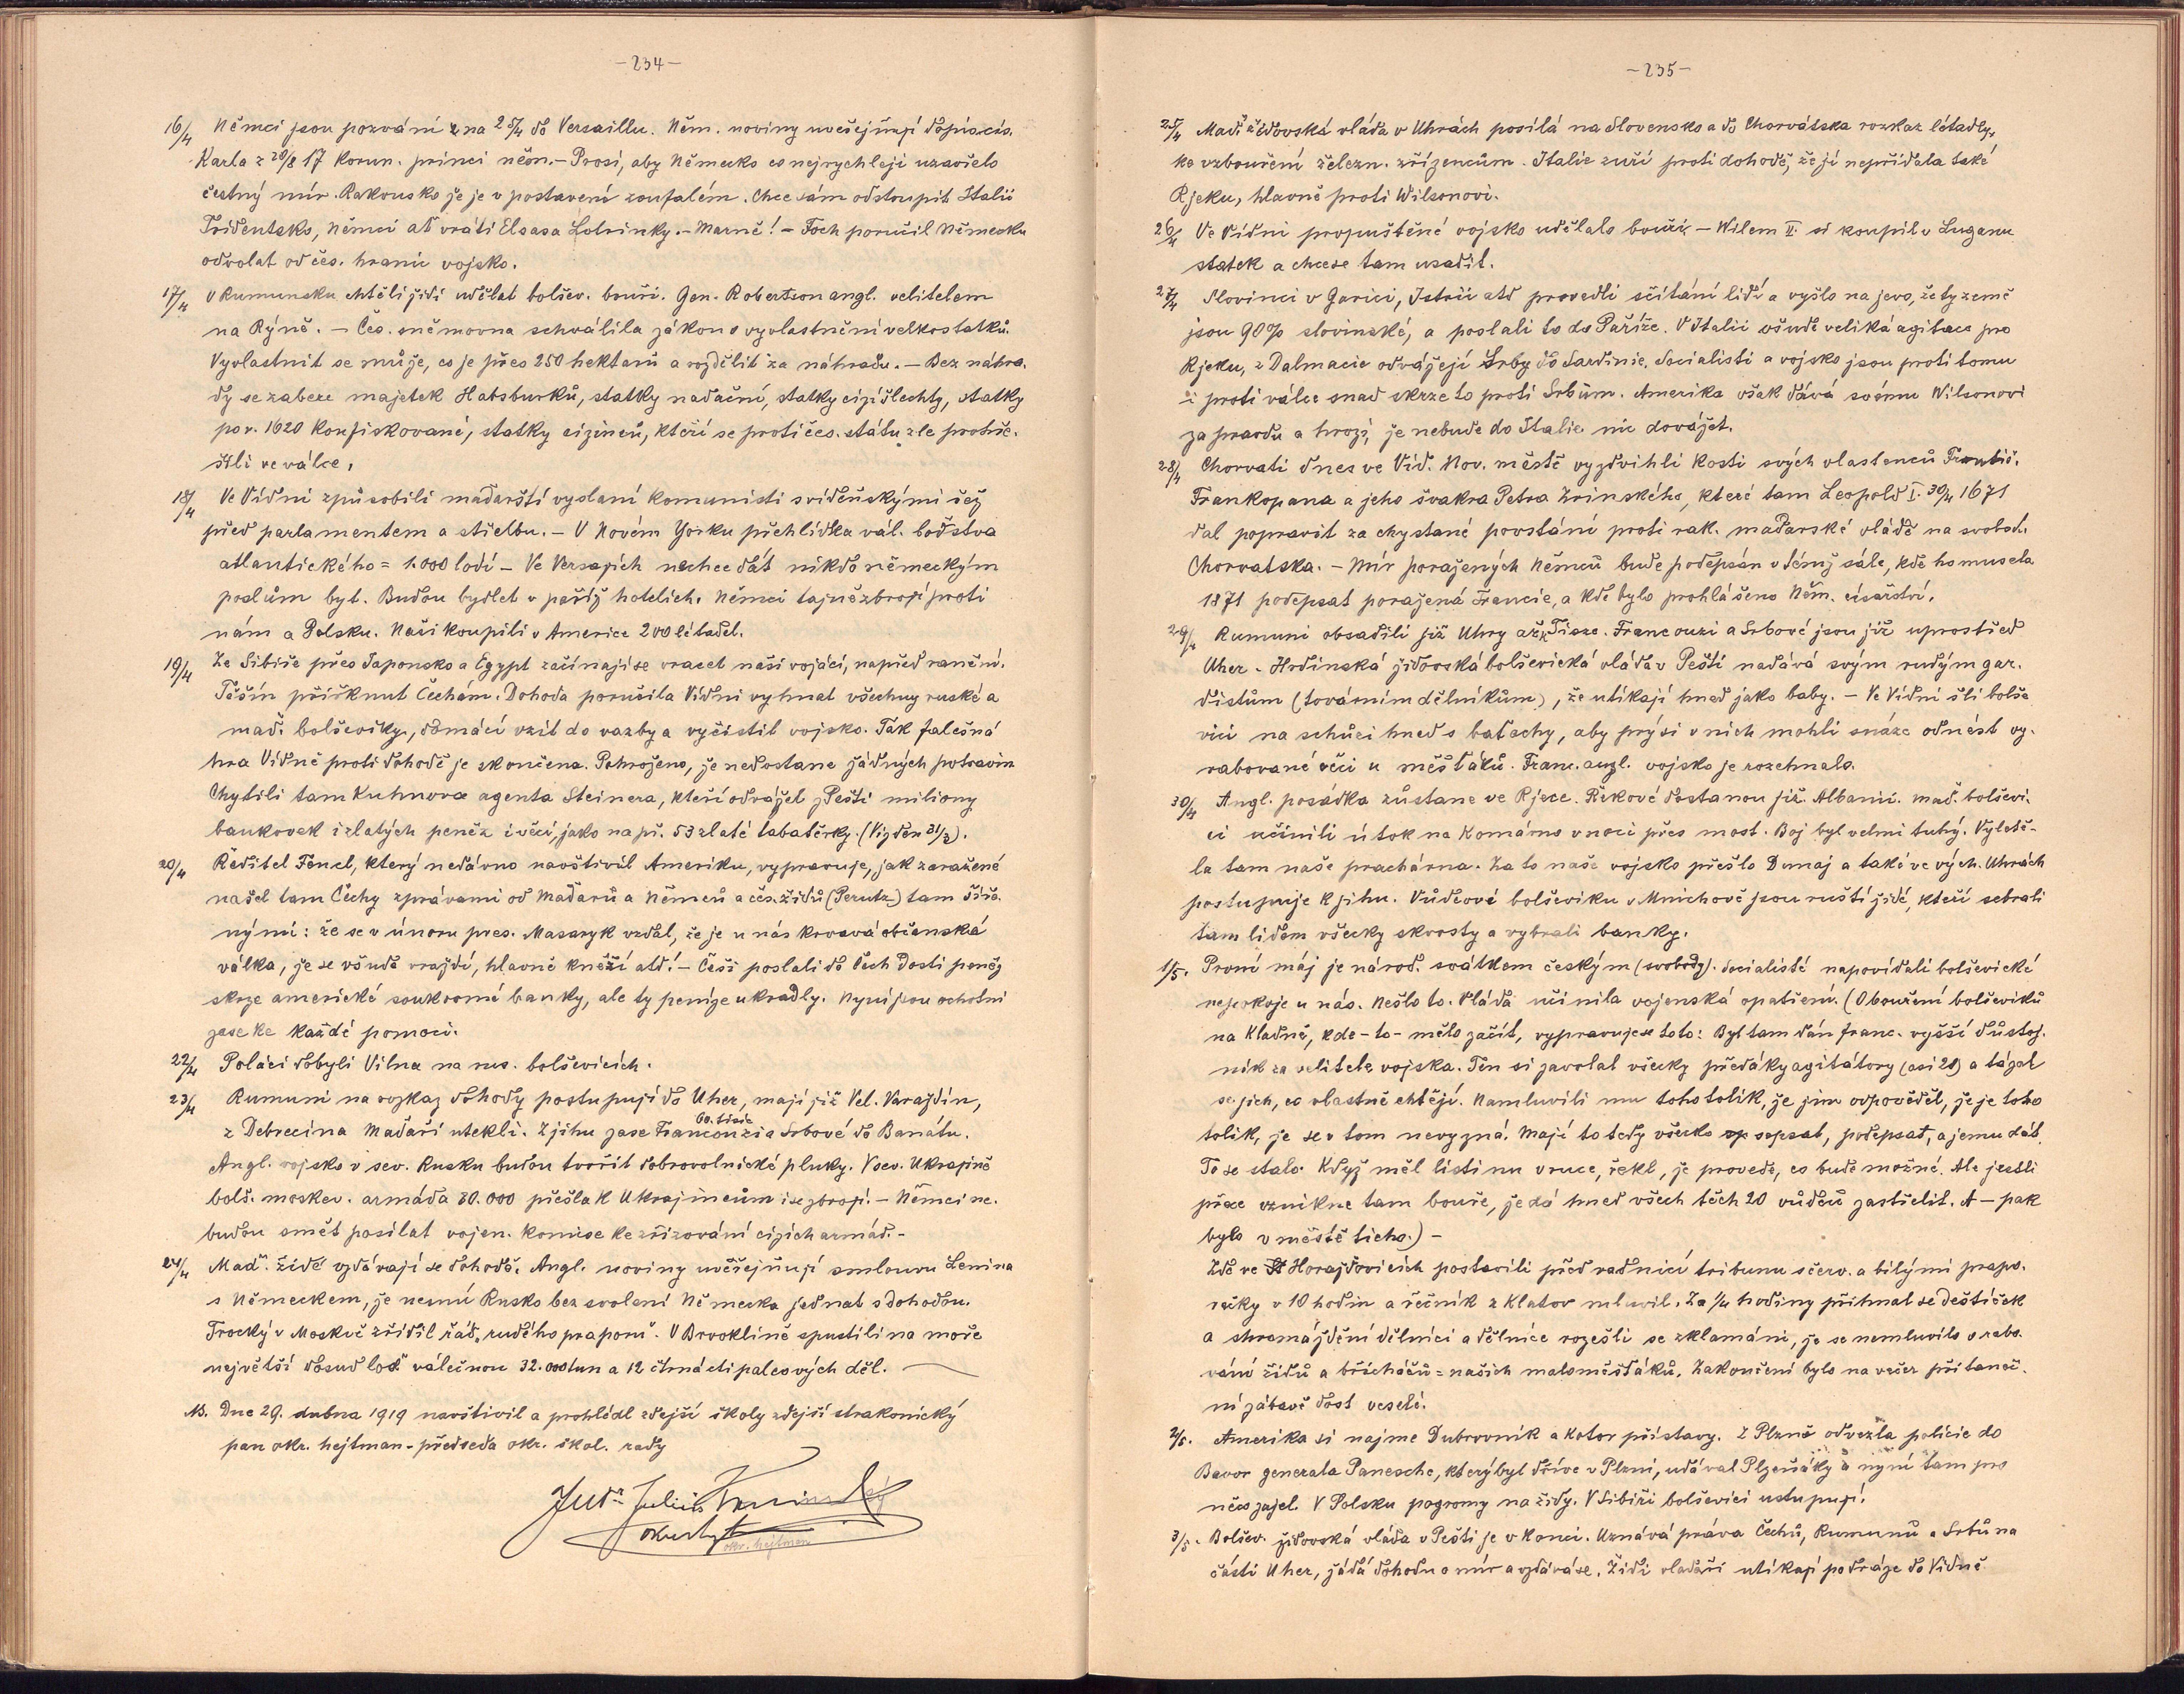 -234-
16/4 Němci jsou pozváni na 25/4 do Versaillu. Něm. noviny uveřejňují dopis cís.
Karla z 20/8 17 korun. princi něm. - Prosí, aby Německo co nejrychleji uzavřelo
čestný mír. Rakousko že je v postavení zoufalém. Chce sám odstoupit Italii
Tridentsko, Němci ať vrátí Elsasa Lotrinky. - Marně! - Foch poručil Německu
odvolat od čes. hranic vojsko.
17/4 V Rumunsku chtěli židi udělat bolšev. bouři. Gen. Robertson angl. velitelem
na Rýně. - Čes. sněmovna schválila zákon o vyvlastnění velkostatků.
Vyvlastnit se může, co je přes 250 hektarů a rozdělit za náhradu. - Bez náhra-
dy se zabere majetek Habsburků, statky nadační, statky cizí šlechty, statky
po r. 1620 konfiskované, statky cizinců, kteří se proti čes. státu zle prohře-
šili ve válce.
18/4 Ve Vídni způsobili maďarští vyslaní komunisti s vídeňskými řež
před parlamentem a střelbu. - V Novém Yorku přehlídka vál. loďstva
atlantického = 1.000 lodí - Ve Versajích nechce dát nikdo německým
poslům byt. Budou bydlet v paříž hotelích. Němci tajně zbrojí proti
nám a Polsku. Naši koupili v Americe 200 létadel.
19/4 Ze Sibiře přes Japonsko a Egypt začínají se vracet naši vojáci, napřed ranění.
Těšín přiřknut Čechám. Dohoda poručila Vídni vyhnat všechny ruské a
maď. bolševiky, domácí vzít do vazby a vyčistit vojsko. Tak falešná
hra Vídně proti dohodě je skončena. Pohroženo, že nedostane žádných potravin
Chytili tam Kuhnova agenta Steinera, kteří odvážel z Pešti miliony
bankovek i zlatých peněz i věcí, jako např. 53 zlaté tabatěrky. (Viz den 31/3).
20/4 Ředitel Fencl, který nedávno navštívil Ameriku, vypravuje, jak zaražené
našel tam Čechy zprávami od Maďarů a Němců a čes. židů (Perutz) tam šíře-
nými: že se v únoru pres. Masaryk vzdal, že je u nás krvavá občanská
válka, že se všude vraždí, hlavně kněží atd! - Češi poslali do Čech dosti peněz
skrze americké soukromé banky, ale ty peníze ukradly. Nyní jsou ochotni
zase ke každé pomoci.
22/4 Poláci dobyli Vilna na rus. bolševicích.
23/4 Rumuni na rozkaz dohody postupují do Uher, mají již Vel. Varaždin,
z Debrecina Maďaři utekli. Z jihu zase Francouzi a Srbové do Banátu.
60. tisíc
Angl. vojsko v sev. Rusku budou tvořit dobrovolnické pluky. V sev. Ukrajině
bolš. moskev. armáda 80.000 přešla k Ukrajincům i se zbrojí. - Němci ne-
budou smět posílat vojen. komise ke zřizování cizích armád. -
24/4 Maď. židé vzdávají se dohodě. Angl. noviny uveřejňují smlouvu Lenina
s Německem, že nesmí Rusko bez svolení Německa jednat s dohodou.
Trocký v Moskvě zřídil řád „rudého praporu“. V Brooklině spustili na moře
největší dosud loď válečnou 32.000 tun a 12 čtrnáctipalcových děl.
NB. Dne 29. dubna 1919 navštívil a prohlédl zdejší školy zdejší strakonický
pan okr. hejtman - předseda okr. škol. rady
JUDr Julius
okr. hejtman
-235-
25/4 Maď. židovská vláda v Uhrách posílá na Slovensko a do Chorvátska rozkaz létadly,
ke vzbouření železn. zřízencům. Italie zuří proti dohodě, že jí nepřidala také
Rjeku, hlavně proti Wilsonovi.
26/4 Ve Vídni propuštěné vojsko udělalo bouři. - Wilem II. si koupil v Luganu
statek a chce se tam usadit.
27/4 Slovinci v Gorici, Istrii atd provedli sčítání lidí a vyšlo na jevo, že ty země
jsou 90% slovinské, a poslali to do Paříže. V Italii všude veliká agitace pro
Rjeku, z Dalmacie odvážejí Srby do Sardinie. Socialisti a vojsko jsou proti tomu
i proti válce snad skrze to proti Srbům. Amerika však dává svému Wilsonovi
za pravdu a hrozí, že nebude do Italie nic dovážet.
28/4 Chorvati dnes ve Víd. Nov. městě vyzdvihli kosti svých vlastenců Františ.
Frankopana a jeho švakra Petra Zrinského, které tam Leopold I. 30/4 1671
dal popravit za chystané povstání proti rak. maďarské vládě na svobod.
Chorvatska. - Mír poražených Němců bude podepsán v témž sále, kde ho musela
1871 podepsat poražená Francie, a kde bylo prohlášeno Něm. císařství.
29/4 Rumuni obsadili již Uhry až k Tisze. Francouzi a Srbové jsou již uprostřed
Uher. - Hrdinská židovská bolševická vláda v Pešti nadává svým rudým gar-
distům (továrním dělníkům), že utíkají hned jako baby. - Ve Vídni šli bolše
vici na schůzi hned s baťachy, aby prý si v nich mohli snáze odnést vy-
rabované věci u měšťáků. Franc. angl. vojsko je rozehnalo.
30/4 Angl. posádka zůstane ve Rjece. Řekové dostanou již. Albanii. Maď. bolševi-
ci učinili útok na Komárno v noci přes most. Boj byl velmi tuhý. Vyletě-
la tam naše prachárna. Za to naše vojsko přešlo Dunaj a také ve vých. Uhrách
postupuje k jihu. Vůdcové bolševiku v Mnichově jsou ruští židé, kteří sebrali
tam lidem všecky skvosty a vybrali banky.
1/5. První máj je národ. svátkem českým (svobody). Socialisté napovídali bolševické
nepokoje u nás. Nešlo to. Vláda učinila vojenská opatření. (O bouření bolševiků
na Kladně, kde - to - mělo začít, vypravuje se toto: Byl tam dán franc. vyšší důstoj-
ník za velitele vojska. Ten si zavolal všecky předáky agitátory (asi 20) a tázal
se jich, co vlastně chtějí. Namluvili mu toho tolik, že jim odpověděl, že je toho
tolik, že se v tom nevyzná. Mají to tedy všecko sepsat, podepsat, a jemu dát.
To se stalo. Když měl listinu v ruce, řekl, že provede, co bude možné. Ale jestli
přece vznikne tam bouře, že dá hned všech těch 20 vůdců zastřelit. A - pak
bylo v městě ticho.) -
Zde ve Horažďovicích postavili před radnicí tribunu s červ. a bílými prapo-
rečky v 10 hodin a řečník z Klatov mluvil. Za 1/4 hodiny přihnal se deštíček
a shromáždění dělníci a dělnice rozešli se zklamáni, že se nemluvilo o rabo-
vání židů a břicháčů = našich maloměšťáků. Zakončení bylo na večer při taneč-
ní zábavě dost veselé.
2/5. Amerika si najme Dubrovník a Kotor přístavy. Z Plzně odvezla policie do
Bavor generala Panesche, který byl dříve v Plzni, udával Plzeňáky a nyní tam pro
něco zajel. V Polsku pogromy na židy. V Sibiři bolševici ustupují.
3/5. Bolšev. židovská vláda v Pešti je v konci. Uznává práva Čechů, Rumunů a Srbů na
části Uher, žádá dohodu o mír a vzdává se. Židi vladaři utíkají po dráze do Vídně